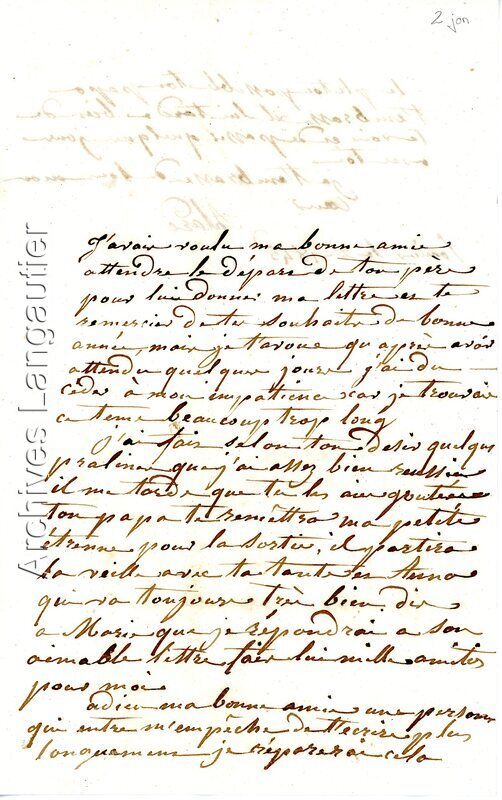 2 jan
J'avais voulu ma bonne amie
attendre le départ de ton père
pour lui donner ma lettre et te
remercier de tes souhaits de bonne
année, mais je t'avoue qu'apres avoir
attendu quelques jours j'ai du
céder à mon impatience car je trouvais
ce tems beaucoup trop long
j'ai fais selon ton desir quelques
pralines que j'ai assez bien reussies
il me tarde que tu les aies goutées
ton papa te remettra ma petite
étrenne pour la sortie, il partira
la veille avec ta tante et Anna
qui va toujours très bien. dis
a Marie que je répondrai a son
aimable lettre fais lui mille amitiés
pour moi
adieu ma bonne amie une personne
qui entre m'empêche de t'ecrire plus
longuement je réparerai cela
Archives Langautier